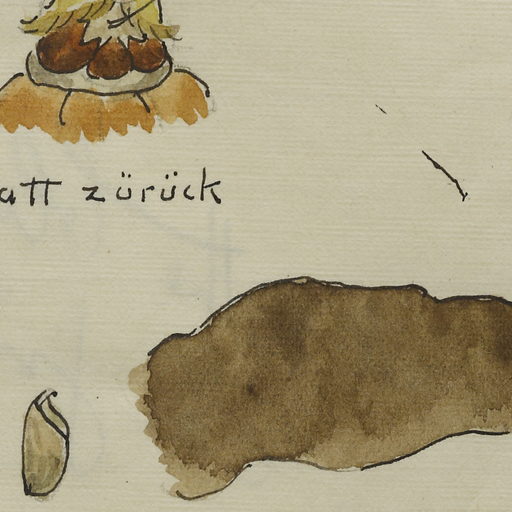 att zürück